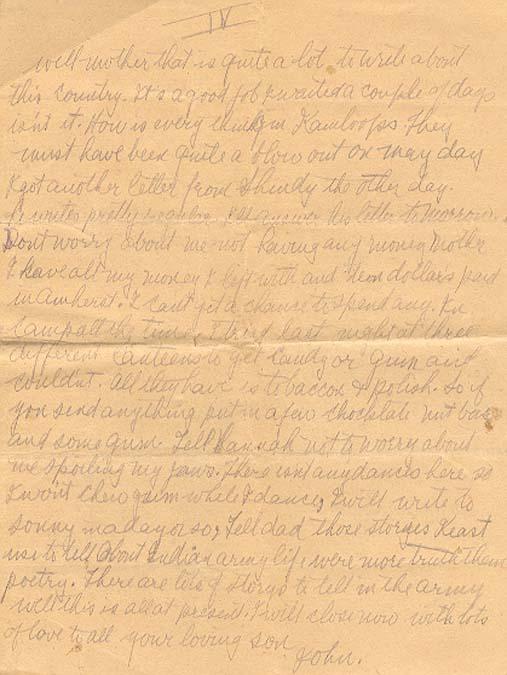 IV
well mother that is quite a lot to write about
this country. It's a good job I waited a couple of days
isn't it. How is every thing in Kamloops. They
must have been quite a blow out on May day
I got another letter from Shindy the other day.
He writes pretty regular I'll answer his letter to morrow.
Dont worry about me not having any money Mother
I have all my money I left with and teen dollars paid
in Amherst. I can't get a chance to spend any. In
camp all the time, I tried last night at three
different canteens to get candy or gum and
couldn't. All they have is tobaccoe & polish. So if
you send anything put in a few chocolate nut bars
and some gum. Tell Hannah not to worry about
me spoiling my jaws. There isnt any dances here so
I wont chew gum while I dance, I will write to
sonny in a day or so, Tell dad those storyes Keast
use to tell about Indian army life were more truth then
poetry. There are lots of storys to tell in the army
well this is all at present. I will close now with lots
of love to all your loving son
John.